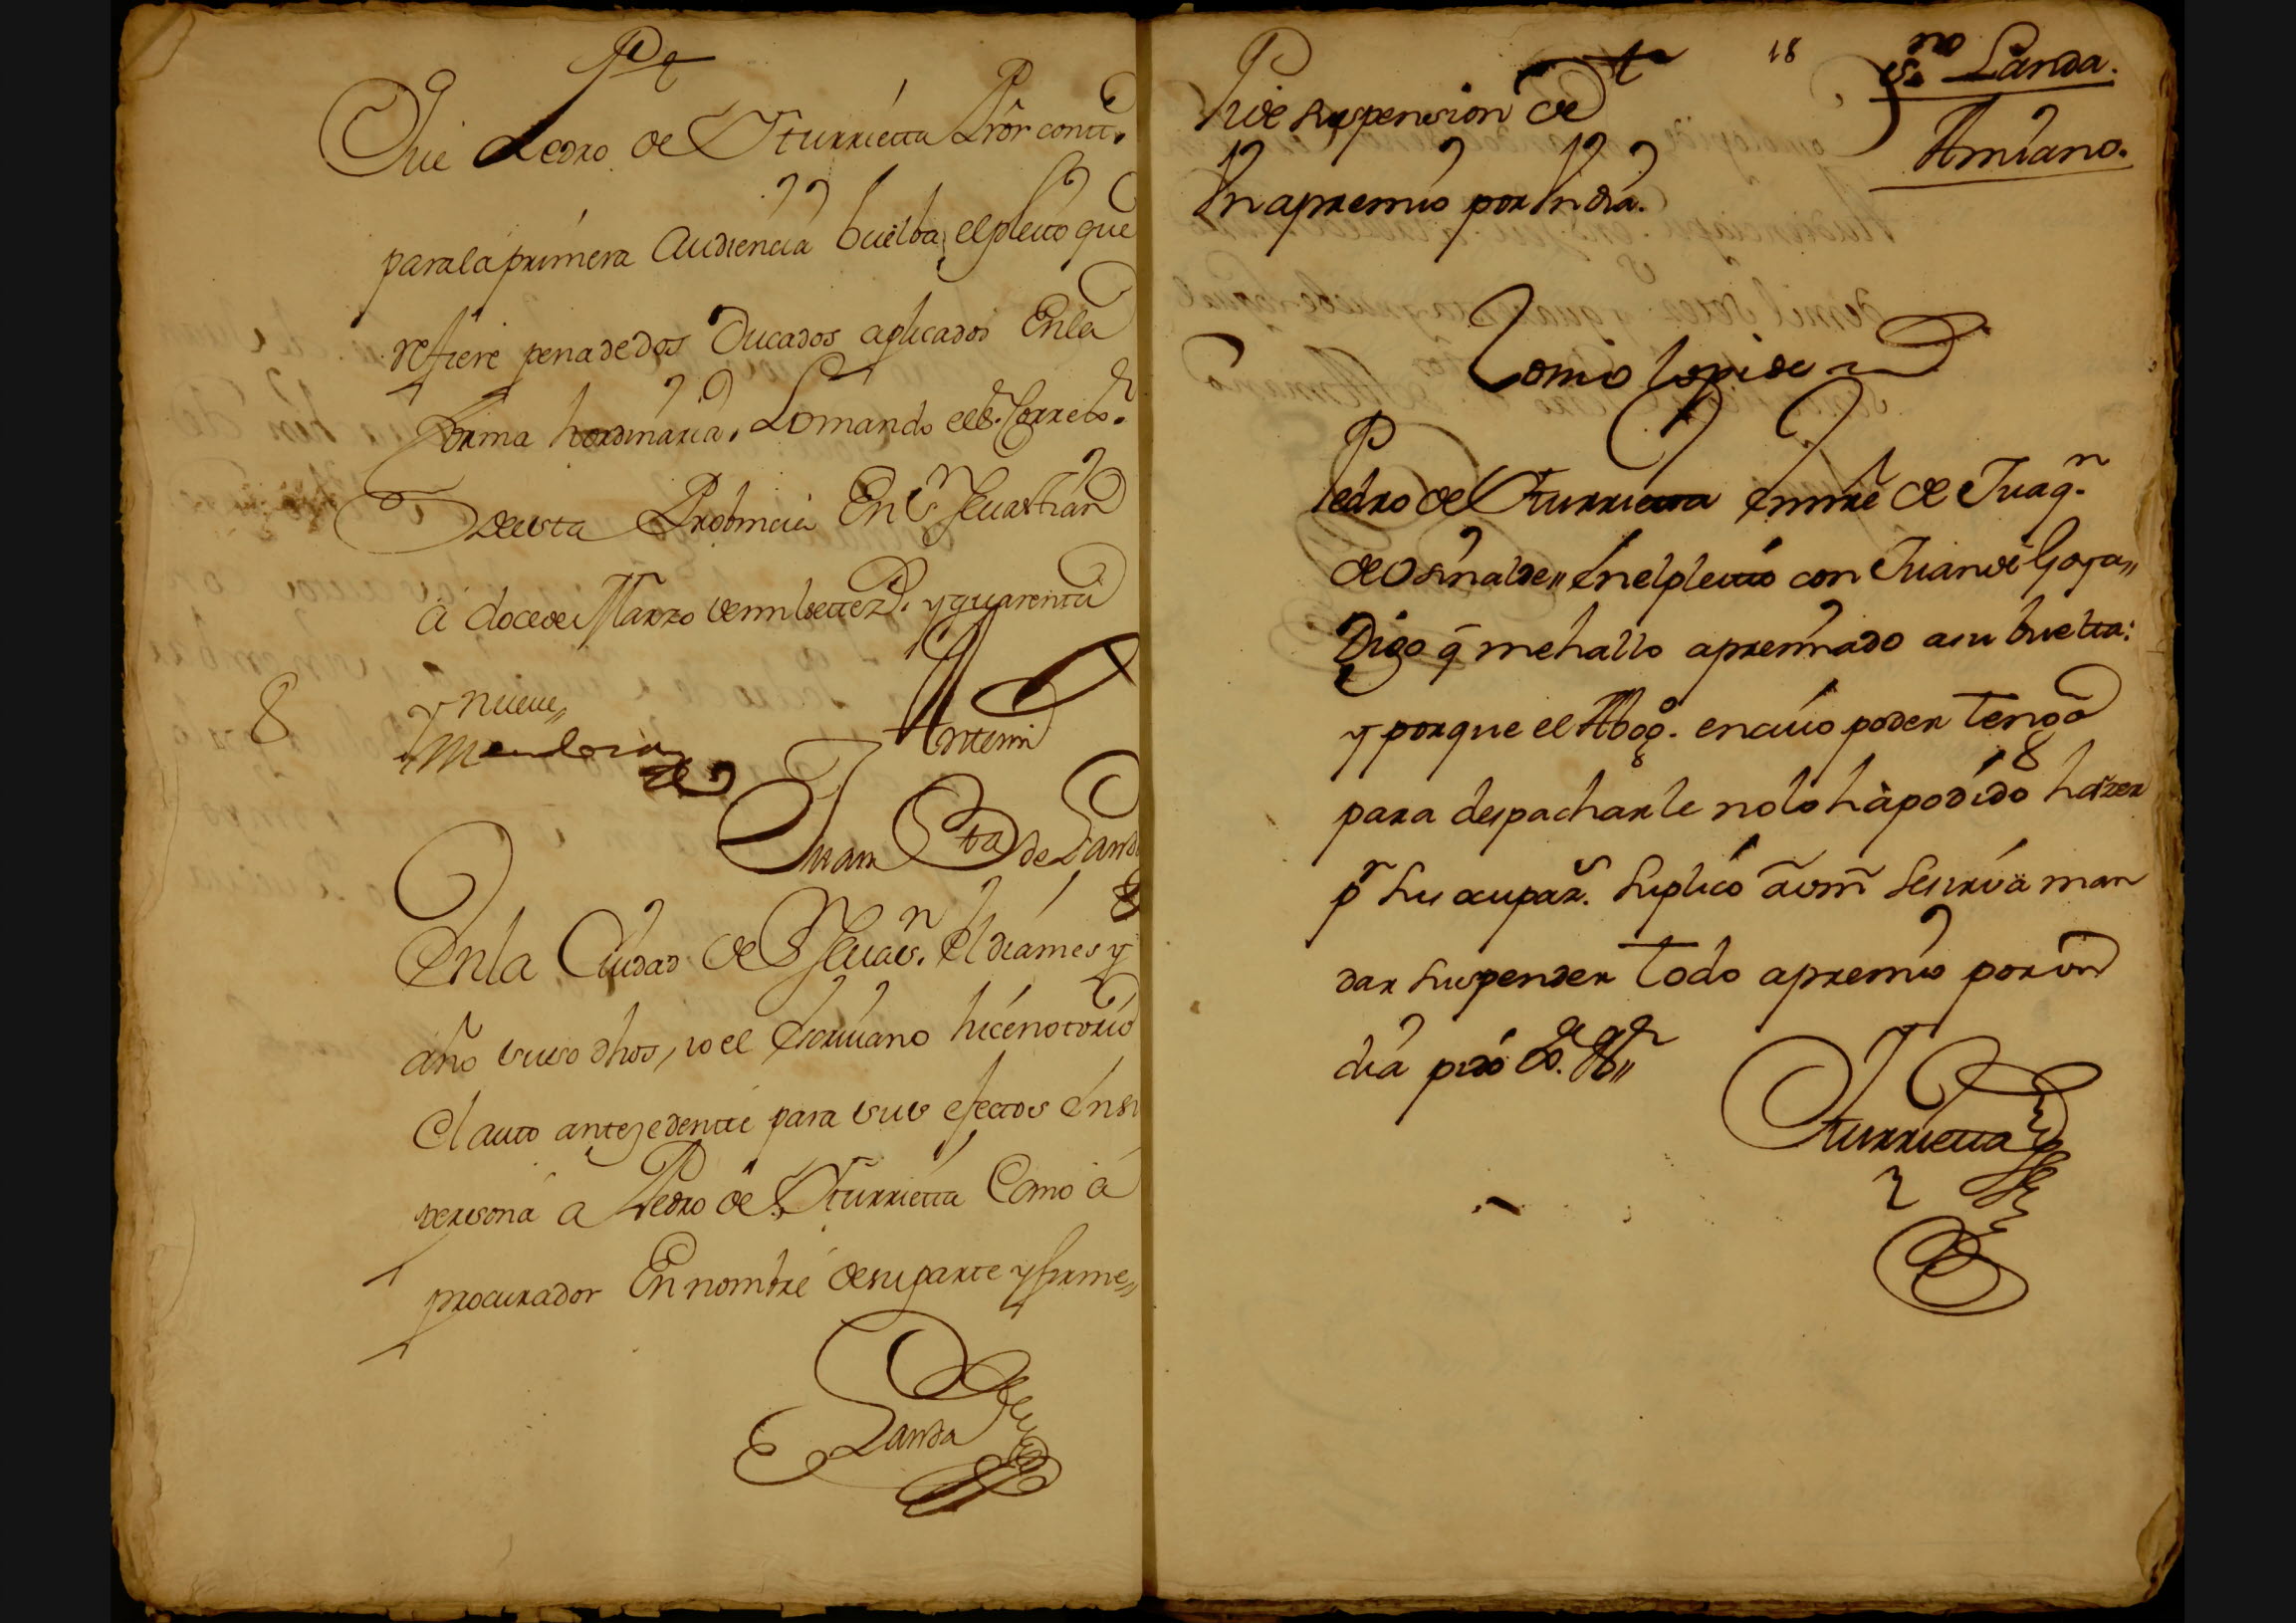 Que Pedro de Yturrietta Pror contt.
para la primera Audiencia buelba el pleito que
refiere pena de dos Ducados aplicados En la
forma hordinaria. Lo mando el S. Correxor.
de esta Probincia En Sn Sevastian
à doce de Marzo de mil settez.s y quarenta
y nueue,,
Mendoza
Antemi
Juan Bta de Landa
En la Ciudad de Sn Sevasn. el dia mes y
año suso dhos, yo el Escriuano hice notorio
El auto antezedente para sus efectos En su
persona a Pedro de Yturrietta Como á
procurador En nombre de su parte y firme,,
Landa
18
Esno Landa.
Amiano.
Pide suspension de
Vn apremio por Vn dia.
Como lo pide
Pedro de Yturrietta En nre de Juaqn.
de Osinalde,, En el pleitto con Juan de Goya,,
Digo q̄ me hallo apremiado a su buelta:
y porque el Abogo. en cuio poder tengo
para despacharle no lo hà podido hazer
pr su ocupazn. Suplico à vm se sirva man
dar suspender todo apremio por vn
dia pido
Yturrietta